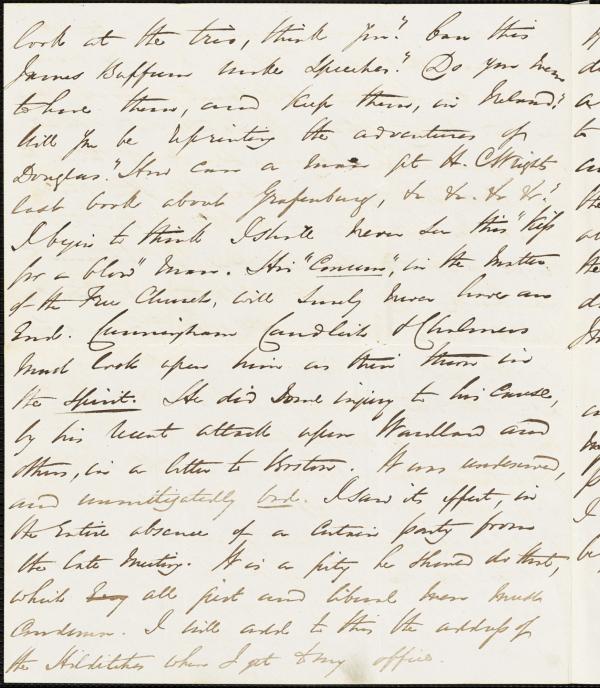 look at the trio, think you?" Can this
James Buffum make speeches?" Do you mean
to have them, and keep them, in Ireland?"
Will you be reprinting the adventures of
Douglas?" How can a man get H. C. Wright's
last book about Grafenburg, &c &c. &c &c."
I begin to think I shall never see this "Kiss
for a blow" man. His "Concern", in the matter
of the Free Church, will surely never have an
End. Cunningham Candlish & Chalmers
must look upon him as their thorn in
the spirit. He did some injury to his cause,
by his recent attack upon Wardlaw and
others, in a letter to Boston. It was undeserved,
and unmitigatedly bad. I saw its effect, in
the entire absence of a certain party from
the late Meeting. It is a pity he should do that,
which all just and liberal men must
condemn. I will add to this the address of
the Hilditches when I get to my office.